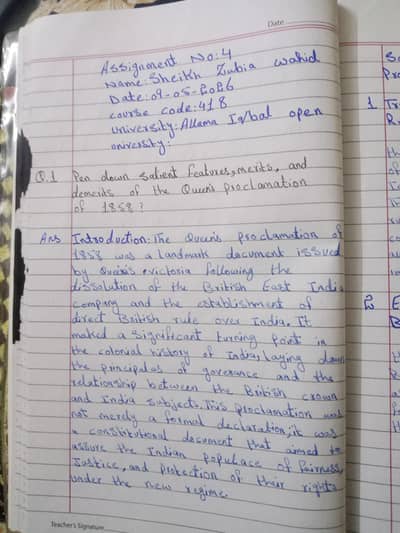 Date
Assignment No:4
Name: Sheikh Zubia wahid
Date: 09-05-2026
course code:418
university: Allama Iqbal open
university:
Q.1 Pen down salient features, merits, and
demerits of the Queen's proclamation
of 1858?
Ans Introduction: The Queen's proclamation of
1858 was a landmark document issued
by victoria following the
dissolution of the British East India
company and the establishment of
direct British rule over India. It
maked a significant turning point in
the colonial history of India, laying down
the principales of governce and the
relationship between the British crown
and India subjects. This proclamation was
not merely a formal declaration, it was
a constitutional document that aimed to
assure the Indian populace of fairness,
Justice, and protection of their rights
under the new regime.
Teacher's Signature
1
2